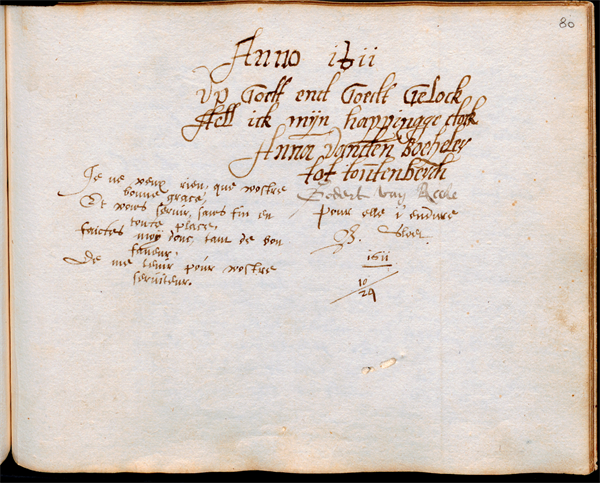 80
Anno 1611
Up Godt end Goedt Gelock
Stell ick mijn happingge
Anna Vanden Boeheler
tot
Je ne veux rien, que vostre
bonne grace,
Et vous servir, sans fin en
toute place,
Faictes moy donc, tant de bon
faueur,
De me tenir pour vostre
seruiteur.
Godert van
Pour elle j'endure
1611
10
29